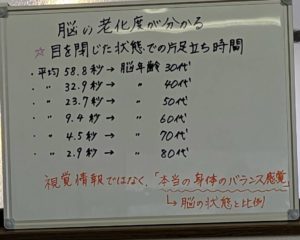 脳の老化度が分かる
☆目を閉じた状態での片足立ち時間
・平均 58.8秒→脳年齢30代
・〃 32.9秒→〃 40代
・〃 23.7秒→〃 50代
・〃 9.4秒→〃 60代
・〃 4.5秒→〃 70代
・〃 2.9秒→〃 80代
視覚情報ではなく、「本当の身体のバランス感覚」
↳脳の状態と比例